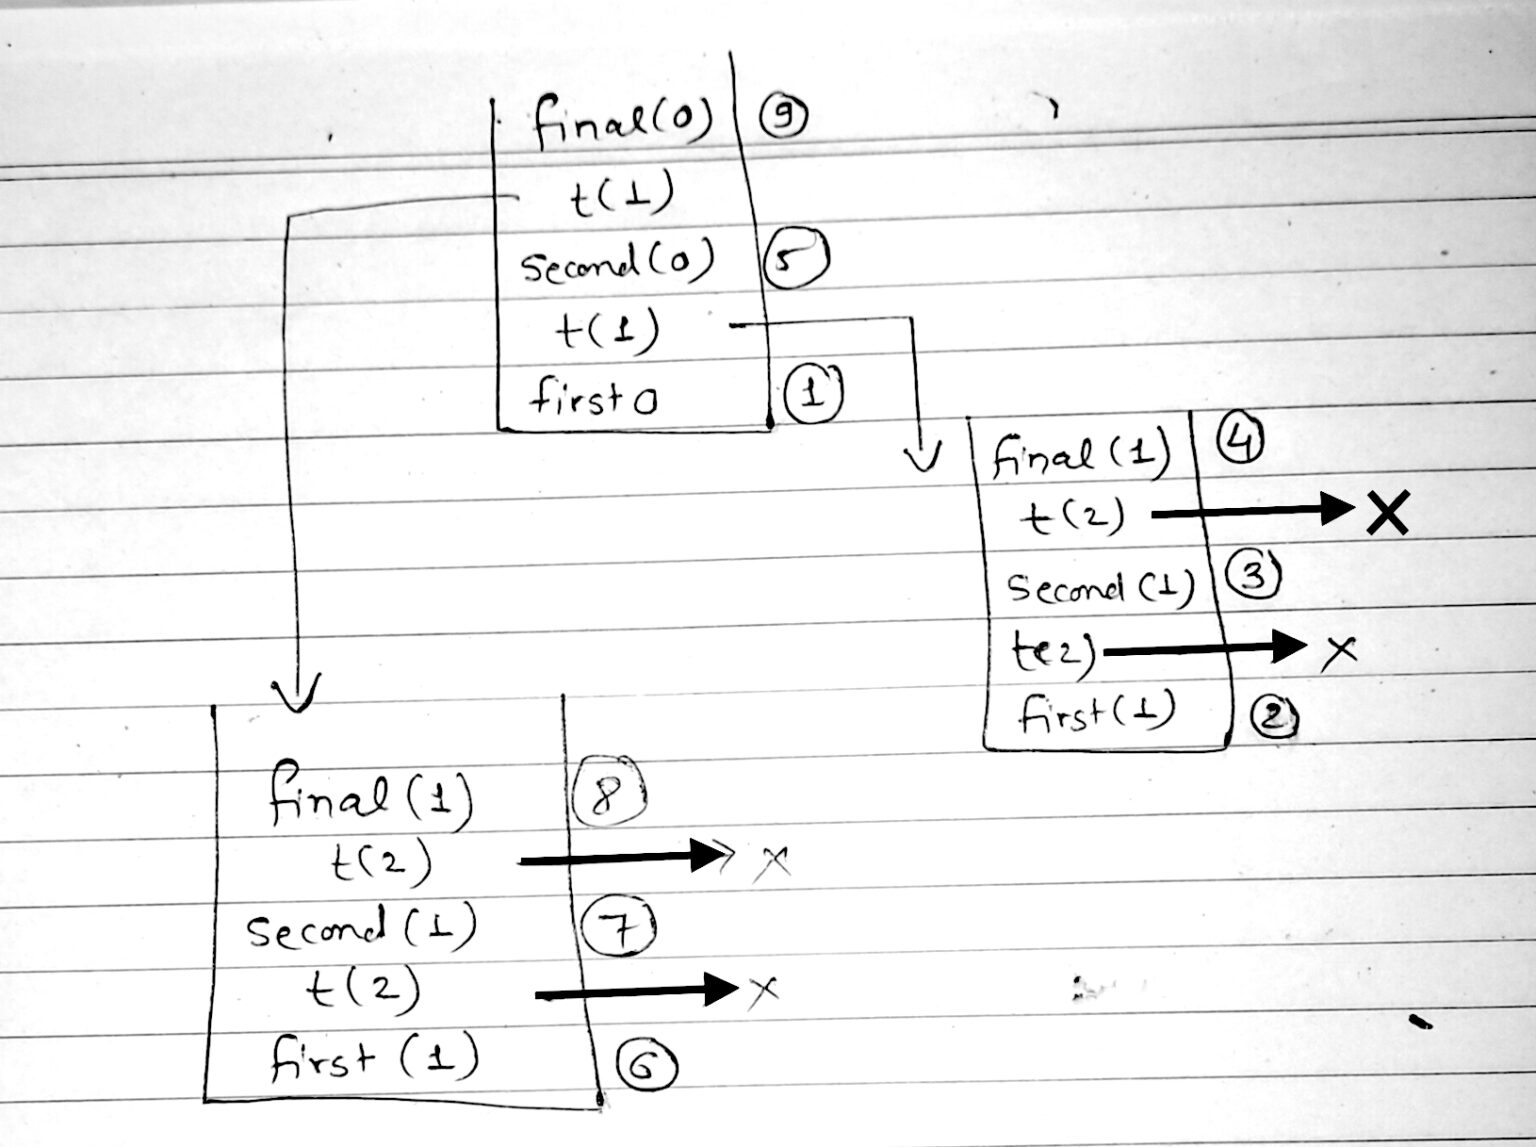 final(0) 9
t(1)
second(0) 5
t(1)
first 0 1
final(1) 4
t(2) X
second(1) 3
te2) X
first(1) 2
final(1) 8
t(2) X
second(1) 7
t(2) X
first(1) 6